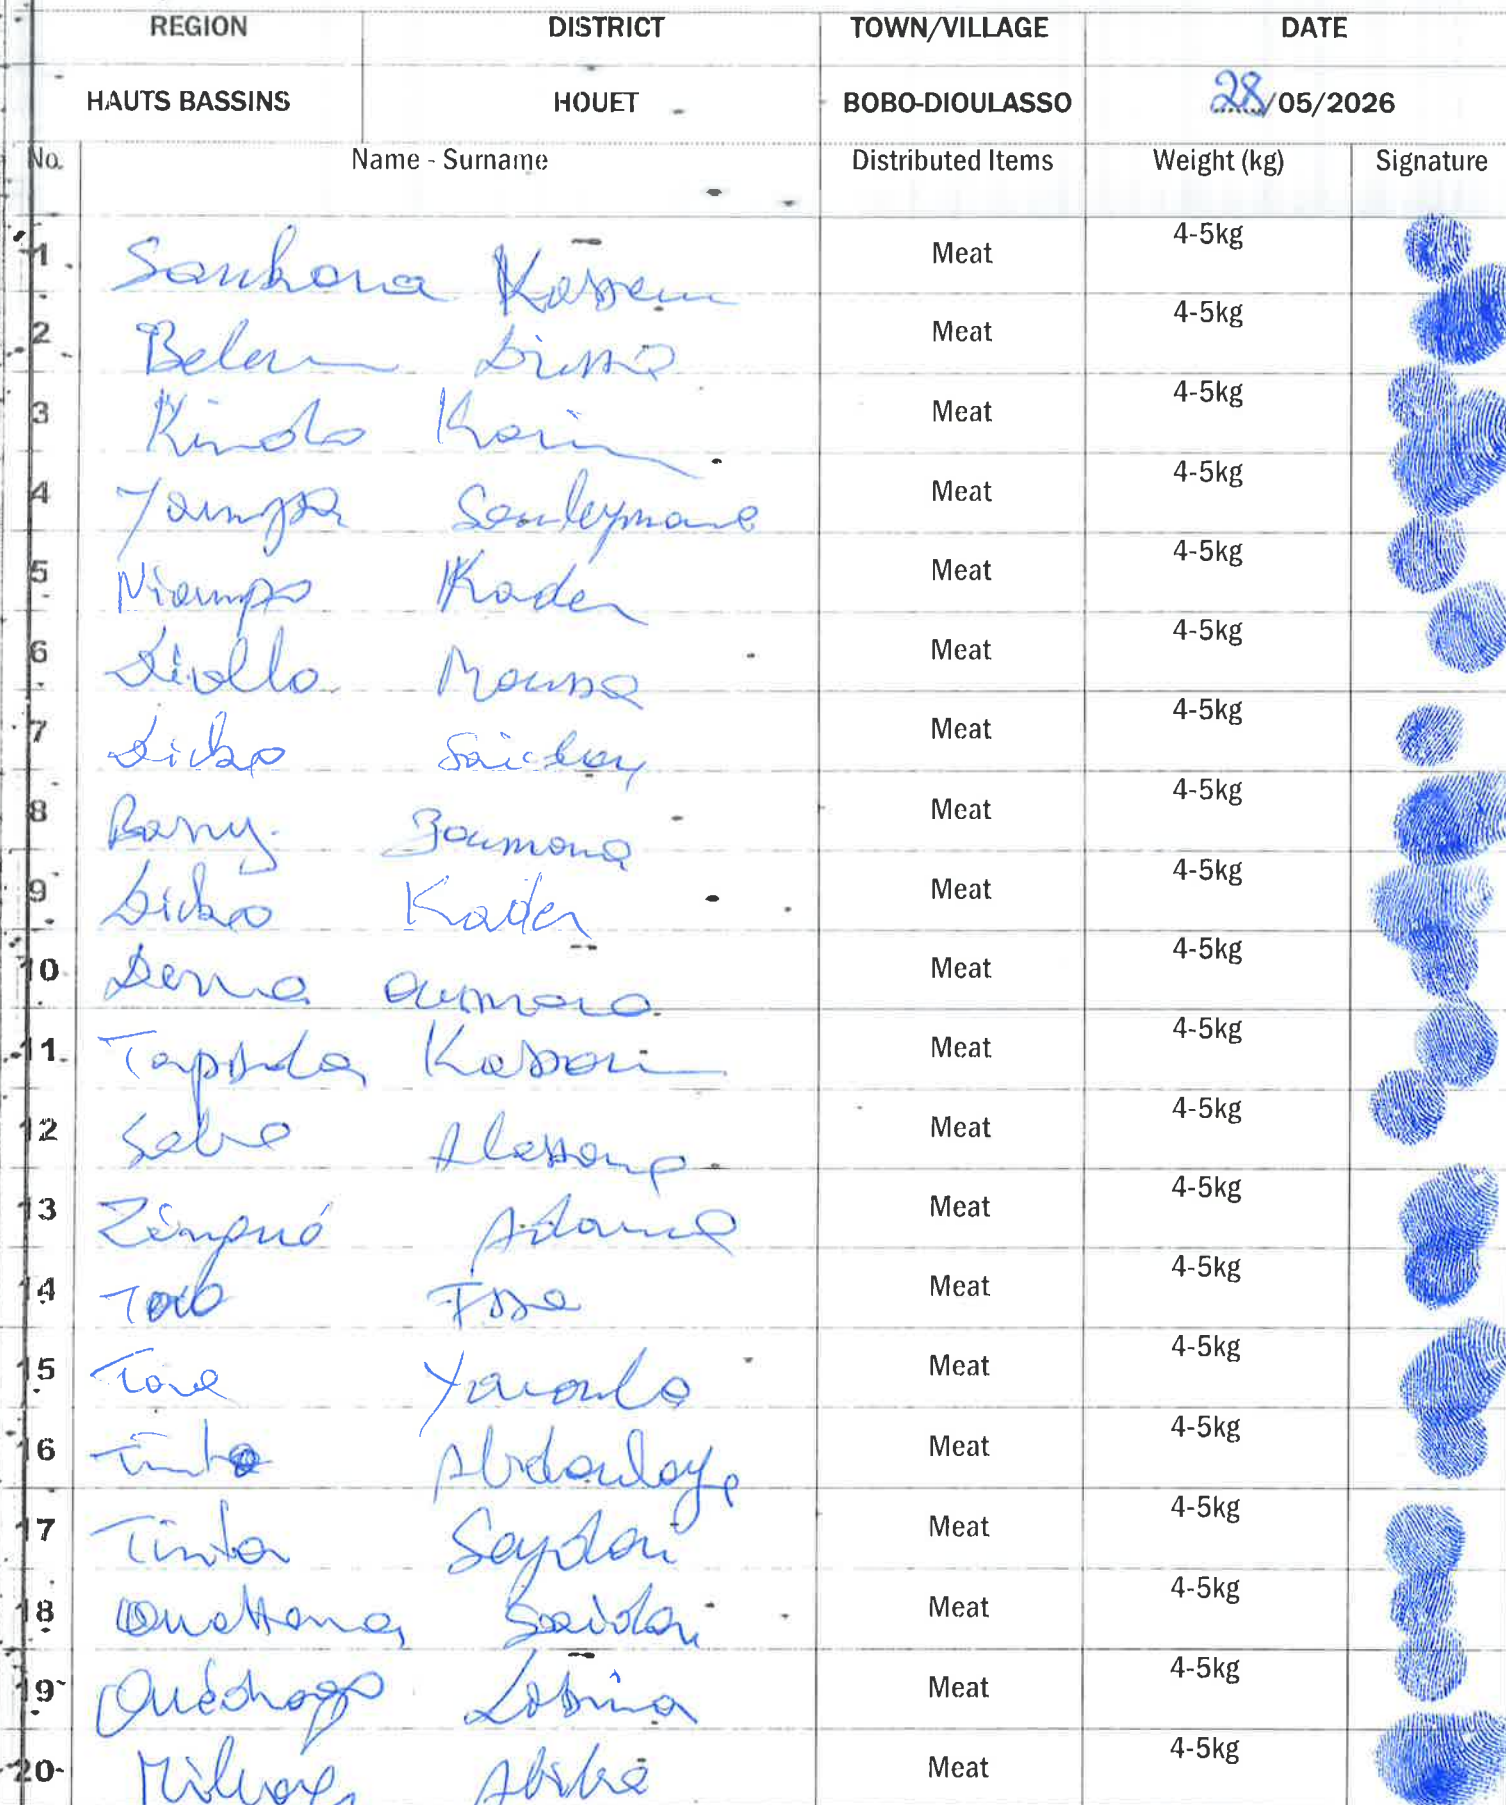 REGION DISTRICT TOWN/VILLAGE DATE
HAUTS BASSINS HOUET BOBO-DIOULASSO 28/05/2026
No. Name - Surname Distributed Items Weight (kg) Signature
1 Sankara Kassem Meat 4-5kg
2 Belem Drissa Meat 4-5kg
3 Kindo Karim Meat 4-5kg
4 Yampa Souleymane Meat 4-5kg
5 Niampa Kader Meat 4-5kg
6 Diallo Moussa Meat 4-5kg
7 Dicko Meat 4-5kg
8 Barry Zoumana Meat 4-5kg
9 Dicko Kader Meat 4-5kg
10 Deme Oumara Meat 4-5kg
11 Tapsoba Meat 4-5kg
12 Alassane Meat 4-5kg
13 Adama Meat 4-5kg
14 Issa Meat 4-5kg
15 Yacouba Meat 4-5kg
16 Tinto Abdoulaye Meat 4-5kg
17 Tinto Seydou Meat 4-5kg
18 Ouattara Saidou Meat 4-5kg
19 Meat 4-5kg
20 Meat 4-5kg